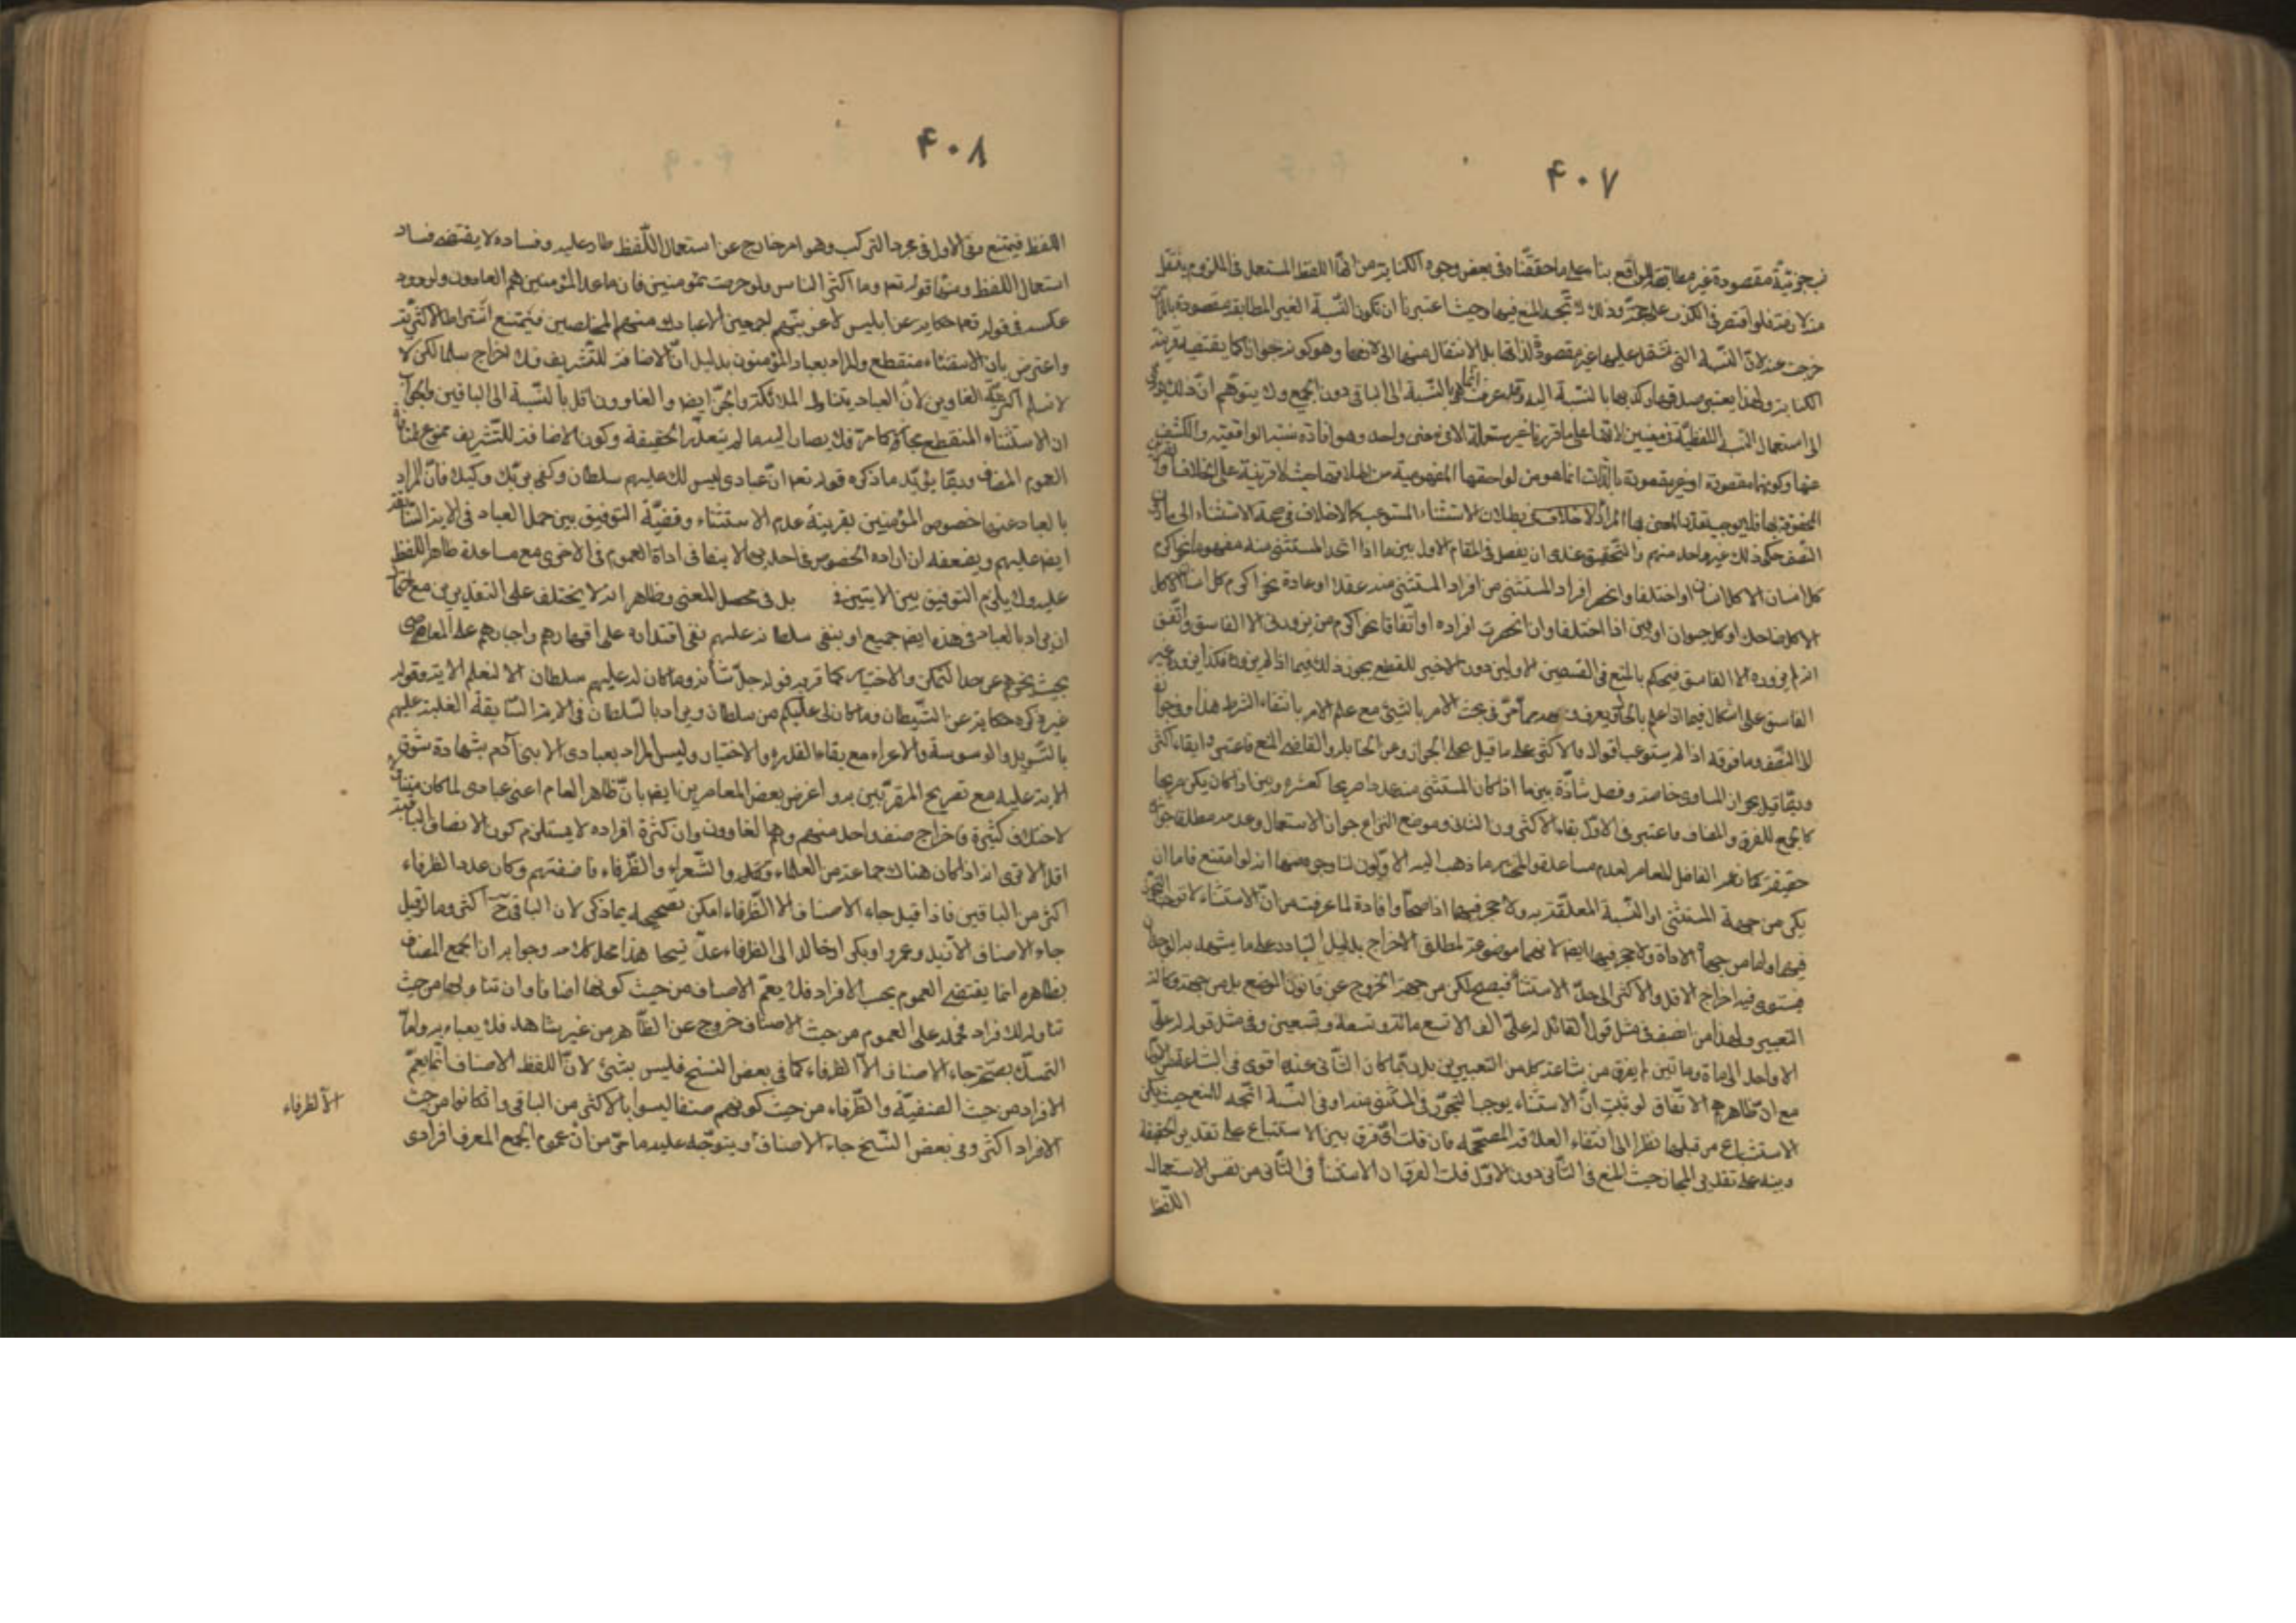 ۴۰۷
جزئية مقصودة غير مطابقة للواقع بناء على ما حققناه في بعض وجوه الكناية من انها اللفظ المستعمل في الملزوم ينتقل
من لازمه فلو اقتصر في الكذب على وذلك تجه المنع فيها وحيث اعتبرنا ان تكون النسبة الغير المطابقة مقصودة بالذات
خرجت عنه لان النسبة التي تشتمل عليها غير مقصودة لذاتها بل للانتقال منها الى لازمها وهو كونه جوادا كما يقتضيه قرينة
الكناية ولهذا يعتبر صدقها وكذبها بالنسبة اليه وقد عرفت انها هي بالنسبة الى الباقي دون الجميع ولا يتوهم ان ذلك يؤدي
الى استعمال النسبة اللفظية في معنيين لانها على ما قررنا غير مستعملة الا في معنى واحد وهو افادة نسبة الواقعية والكشف
عنها وكونها مقصودة او غير مقصودة بالذات انما هو من لواحقها المفهومية من اطلاقها حيث لا قرينة على الخلاف
المحفوفة بها فلا يوجب تعدد المعنى بها المراد لا خلاف في بطلان الاستثناء المستوعب كما لا خلاف في صحة الاستثناء الى ما دون
النصف حكى ذلك غير واحد منهم والتحقيق عندي ان يفصل في المقام الاول بين ما اذا اتحد المستثنى منه مفهوما نحو اكرم
كل انسان الا كل انسان او اختلفا وانحصر افراد المستثنى من افراد المستثنى منه عقلا او عادة نحو اكرم كل انسان الا كل
الا كل ضاحك او كل حيوان او بين اذا اختلفا وان انحصرت افراده او اتفاقا نحو اكرم من يزورني الا الفاسق واتفق
انه لم يزوره الا الفاسق فيحكم بالمنع في القسمين الاولين دون الاخير للقطع بجواز ذلك فيما اذا لم يزره فكذا من زوره غير
الفاسق على اشكال فيما اذا علم بالحال يعرف وجهه مما مر في بحث الامر بالشيء مع علم الامر بانتفاء الشرط هذا
الا النصف وما فوقه اذا لم يستوعب اقوال فالاكثر على ما قيل على الجواز وعن الحنابلة والقاضي المنع فاعتبروا بقاء اكثر
وربما قيل بجواز المساوي خاصة وفصل شاذة بين ما اذا كان المستثنى منه عددا صريحا كعشرة وبين اذا كان يكن صريحا
كالجمع المعرف والمضاف فاعتبر في الاول بقاء الاكثر دون الثاني وموضع النزاع جواز الاستعمال وعدمه مطلقا
حقيقة كما زعم الفاضل المعاصر لعدم مساعدة والمختار ما ذهب اليه الاولون لنا وجوه منها انه لو امتنع فاما ان
يكون من جهة المستثنى او النسبة المعلقة به ولا حجر فيهما اذا صحا وافادة لما عرفت من ان الاستثناء لا يوجب التجوز
فيهما واما من جهة الاداة ولا حجر فيها ايضا لانها موضوعة لمطلق الاخراج بدليل التبادر على ما يشهد به الوجدان
فيستوي فيه اخراج الاقل والاكثر الى حد الاستثناء فيصح لكن من جهة الخروج عن قانون الوضع بل من جهة ركاكة
التعبير ولهذا من انصف في مثل قول القائل له علي الف الا تسع مائة وتسعة وتسعين وفي مثل قوله له علي
الا واحد الى ماة وماتين لم يفرق من شاعة كل من التعبيرين بل ربما كان الثاني عنده اقوى في الشناعة من الاول
مع ان ظاهرهم الاتفاق لو ثبت ان الاستثناء يوجب التجوز في المستثنى منه او في النسبة اتجه المنع حيث يكن
الاستبشاع من قبلها نظرا الى انتفاء العلاقة المصححة فان قلت اي فرق بين الاستبشاع على تقدير الحقيقة
وبينه على تقدير المجاز حيث المنع في الثاني دون الاول قلت الفرق ان الاستثناء في الثاني من نفس الاستعمال
اللفظ
۴۰۸
اللفظ فيمتنع وفي الاول في مجرد التركيب وهو امر خارج عن استعمال اللفظ طار عليه وفساده لا يقتضي فساد
استعمال اللفظ ومنها قوله تعم وما اكثر الناس ولو حرصت بمؤمنين فان ما عدا المؤمنين هم الغاوون ولورود
عكسه في قوله تعم حكاية عن ابليس لاغوينهم اجمعين الا عبادك منهم المخلصين فيمتنع اشتراط الاكثرية
واعترض بان الاستثناء منقطع والمراد بعباد المؤمنون بدليل ان الاضافة للتشريف فلا اخراج سلمنا لكن لا
لا نسلم اكثرية الغاوين لان العباد يتناول الملائكة والجن ايضا والغاوون اقل بالنسبة الى الباقين والجواب
ان الاستثناء المنقطع مجاز كما مر فلا يصار اليه ما لم يتعذر الحقيقة وكون الاضافة للتشريف ممنوع
العموم المضاف وربما يؤيد ما ذكره قوله تعم ان عبادي ليس لك عليهم سلطان وكفى بربك وكيلا فان المراد
بالعباد عنها خصوص المؤمنين بقرينة عدم الاستثناء وقضية التوفيق بين حمل العباد في الاية السابقة
ايضا عليهم ويضعفه ان ارادة الخصوص في احديهما لا ينافي ارادة العموم في الاخرى مع مساعدة ظاهر اللفظ
عليه ولا يلزم التوفيق بين الايتين في بل في محصل المعنى وظاهر انه لا يختلف على التقديرين مع احتمال
ان يراد بالعباد في هذه ايضا جميع او بنفي سلطانه عليهم نفي اقتداره على اقهارهم واجبارهم على المعاصي
بحيث يخرجهم عن حد التمكن والاختيار كما قرره قوله جل شأنه وما كان له عليهم سلطان الا لنعلم الاية وقوله
غير ذكره حكاية عن الشيطان وما كان لي عليكم من سلطان ويراد بالسلطان في الاية السابقة الغلبة عليهم
بالتسويل والوسوسة والاغراء مع بقاء القدرة والاختيار وليس المراد بعبادي الا بني آدم بشهادة سوق
الاية عليه مع تصريح المفسرين به واعترض بعض المعاصرين ايضا بان ظاهر العام اعني عبادي لما كان
لاصناف كثيرة فاخراج صنف واحد منهم وهم الغاوون وان كثرة افراده لا يستلزم كون الاصناف الباقية
اقل الا ترى انه اذا كان هناك جماعة من العلماء وكذا والشعراء والظرفاء فاضفتهم وكان عدد الظرفاء
اكثر من الباقين فاذا قيل جاء الاصناف الا الظرفاء امكن تصحيحه بما ذكر لان الباقي ح اكثر وما لو قيل
جاء الاصناف الا زيد وعمرو او بكر او خالد الى الظرفاء عد قبيحا هذا محل كلامه وجوابه ان الجمع المضاف
بظاهره انما يقتضي العموم بحسب الافراد فلا يعم الاصناف من حيث كونها اضافا وان تناولها من حيث
تناوله لافراد فحمله على العموم من حيث الاصناف خروج عن الظاهر من غير شاهد فلا يعباء به واما
التمسك بصحة جاء الاصناف الا الظرفاء كما في بعض النسخ فليس بشئ لان اللفظ الاصناف انما يعم
الافراد من حيث الصنفية والظرفاء من حيث كونهم صنفا ليسوا بالاكثر من الباقي وان كانوا من حيث
الا الظرفاء
الافراد اكثر وفي بعض النسخ جاء الاصناف ويتوجه عليه ما مر من ان عموم الجمع المعرف افرادي